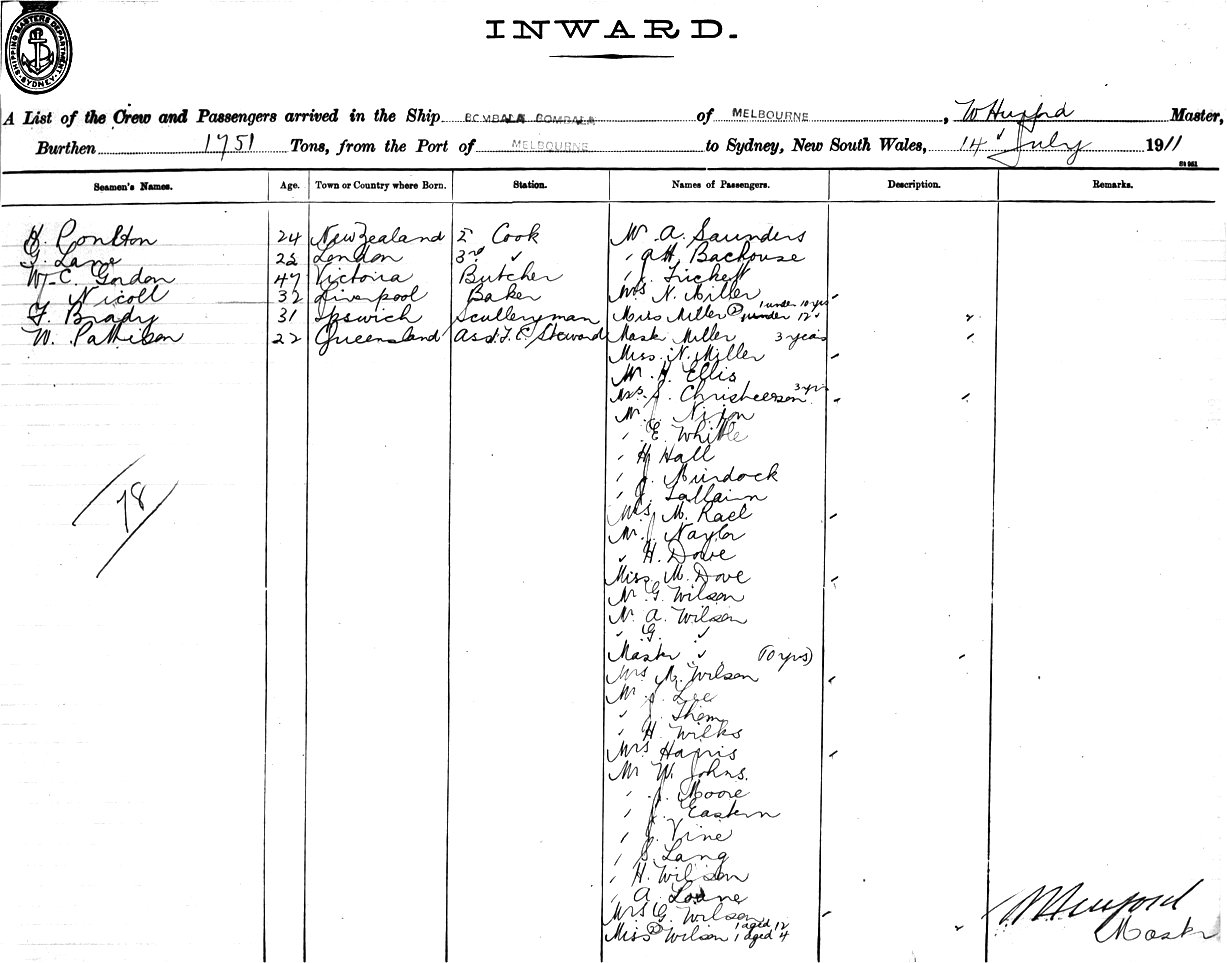 SHIPPING MASTERS DEPARTMENT SYDNEY
INWARD.
A List of the Crew and Passengers arrived in the Ship BOMBALA BOMBALA of MELBOURNE, W Hurford Master,
Burthen 1751 Tons, from the Port of MELBOURNE to Sydney, New South Wales, 14 July 1911
St 951
Seamen's Names. Age. Town or Country where Born. Station. Names of Passengers. Description. Remarks.
H. Poulton 24 New Zealand 2 Cook Mr A. Saunders
G. Lane 25 London 3rd " " A.H. Bachouse
W. C. Gordon 47 Victoria Butcher " J. Trickett
J Nicoll 32 Liverpool Baker Mrs N. Miller
F. Brady 31 Ipswich Sculleryman Miss Miller (2) 1 under 10 yrs 1 under 12 "
W. Pattison 22 Queensland Asst F. C. Steward Mastr Miller 3 years
Miss N. Miller
Mr H Ellis
Mrs J. Christeerson 3 yrs
Mr J Nixon
" E. Whittle
" H Hall
" J. Murdock
" J. Lallain
Mrs M. Rael
Mr J Naylor
" H. Dove
Miss M. Dove
Mr G. Wilson
Mr A. Wilson
" G. "
Mastr " (10 yrs)
Mrs M. Wilson
Mr J. Lee
" J. Thom
" H. Wilks
Mrs Harris
Mr W. Johns.
" J. Moore
" J. Eastern
" J. Vine
" S. Lang
" H. Wilson
" A. Loane
Mrs G. Wilson
Miss (2) Wilson 1 aged 12 1 aged 4
78
W Hurford
Mastr